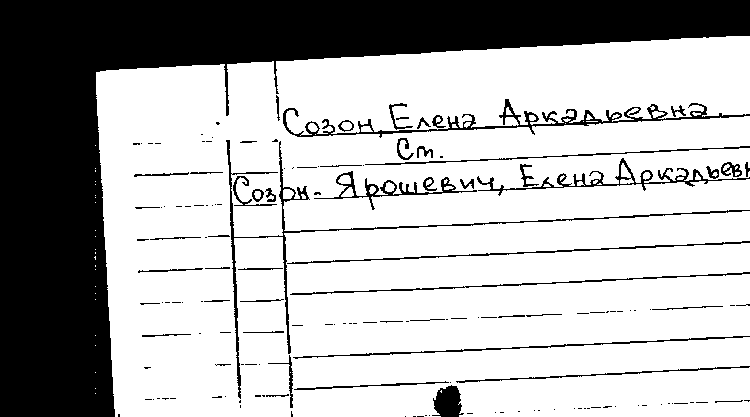 Созон, Елена Аркадьевна.
См.
Созон-Ярошевич, Елена Аркадьев